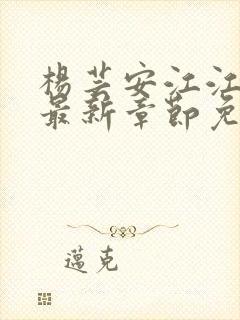 楊芸安江江
最新章節免
邁克